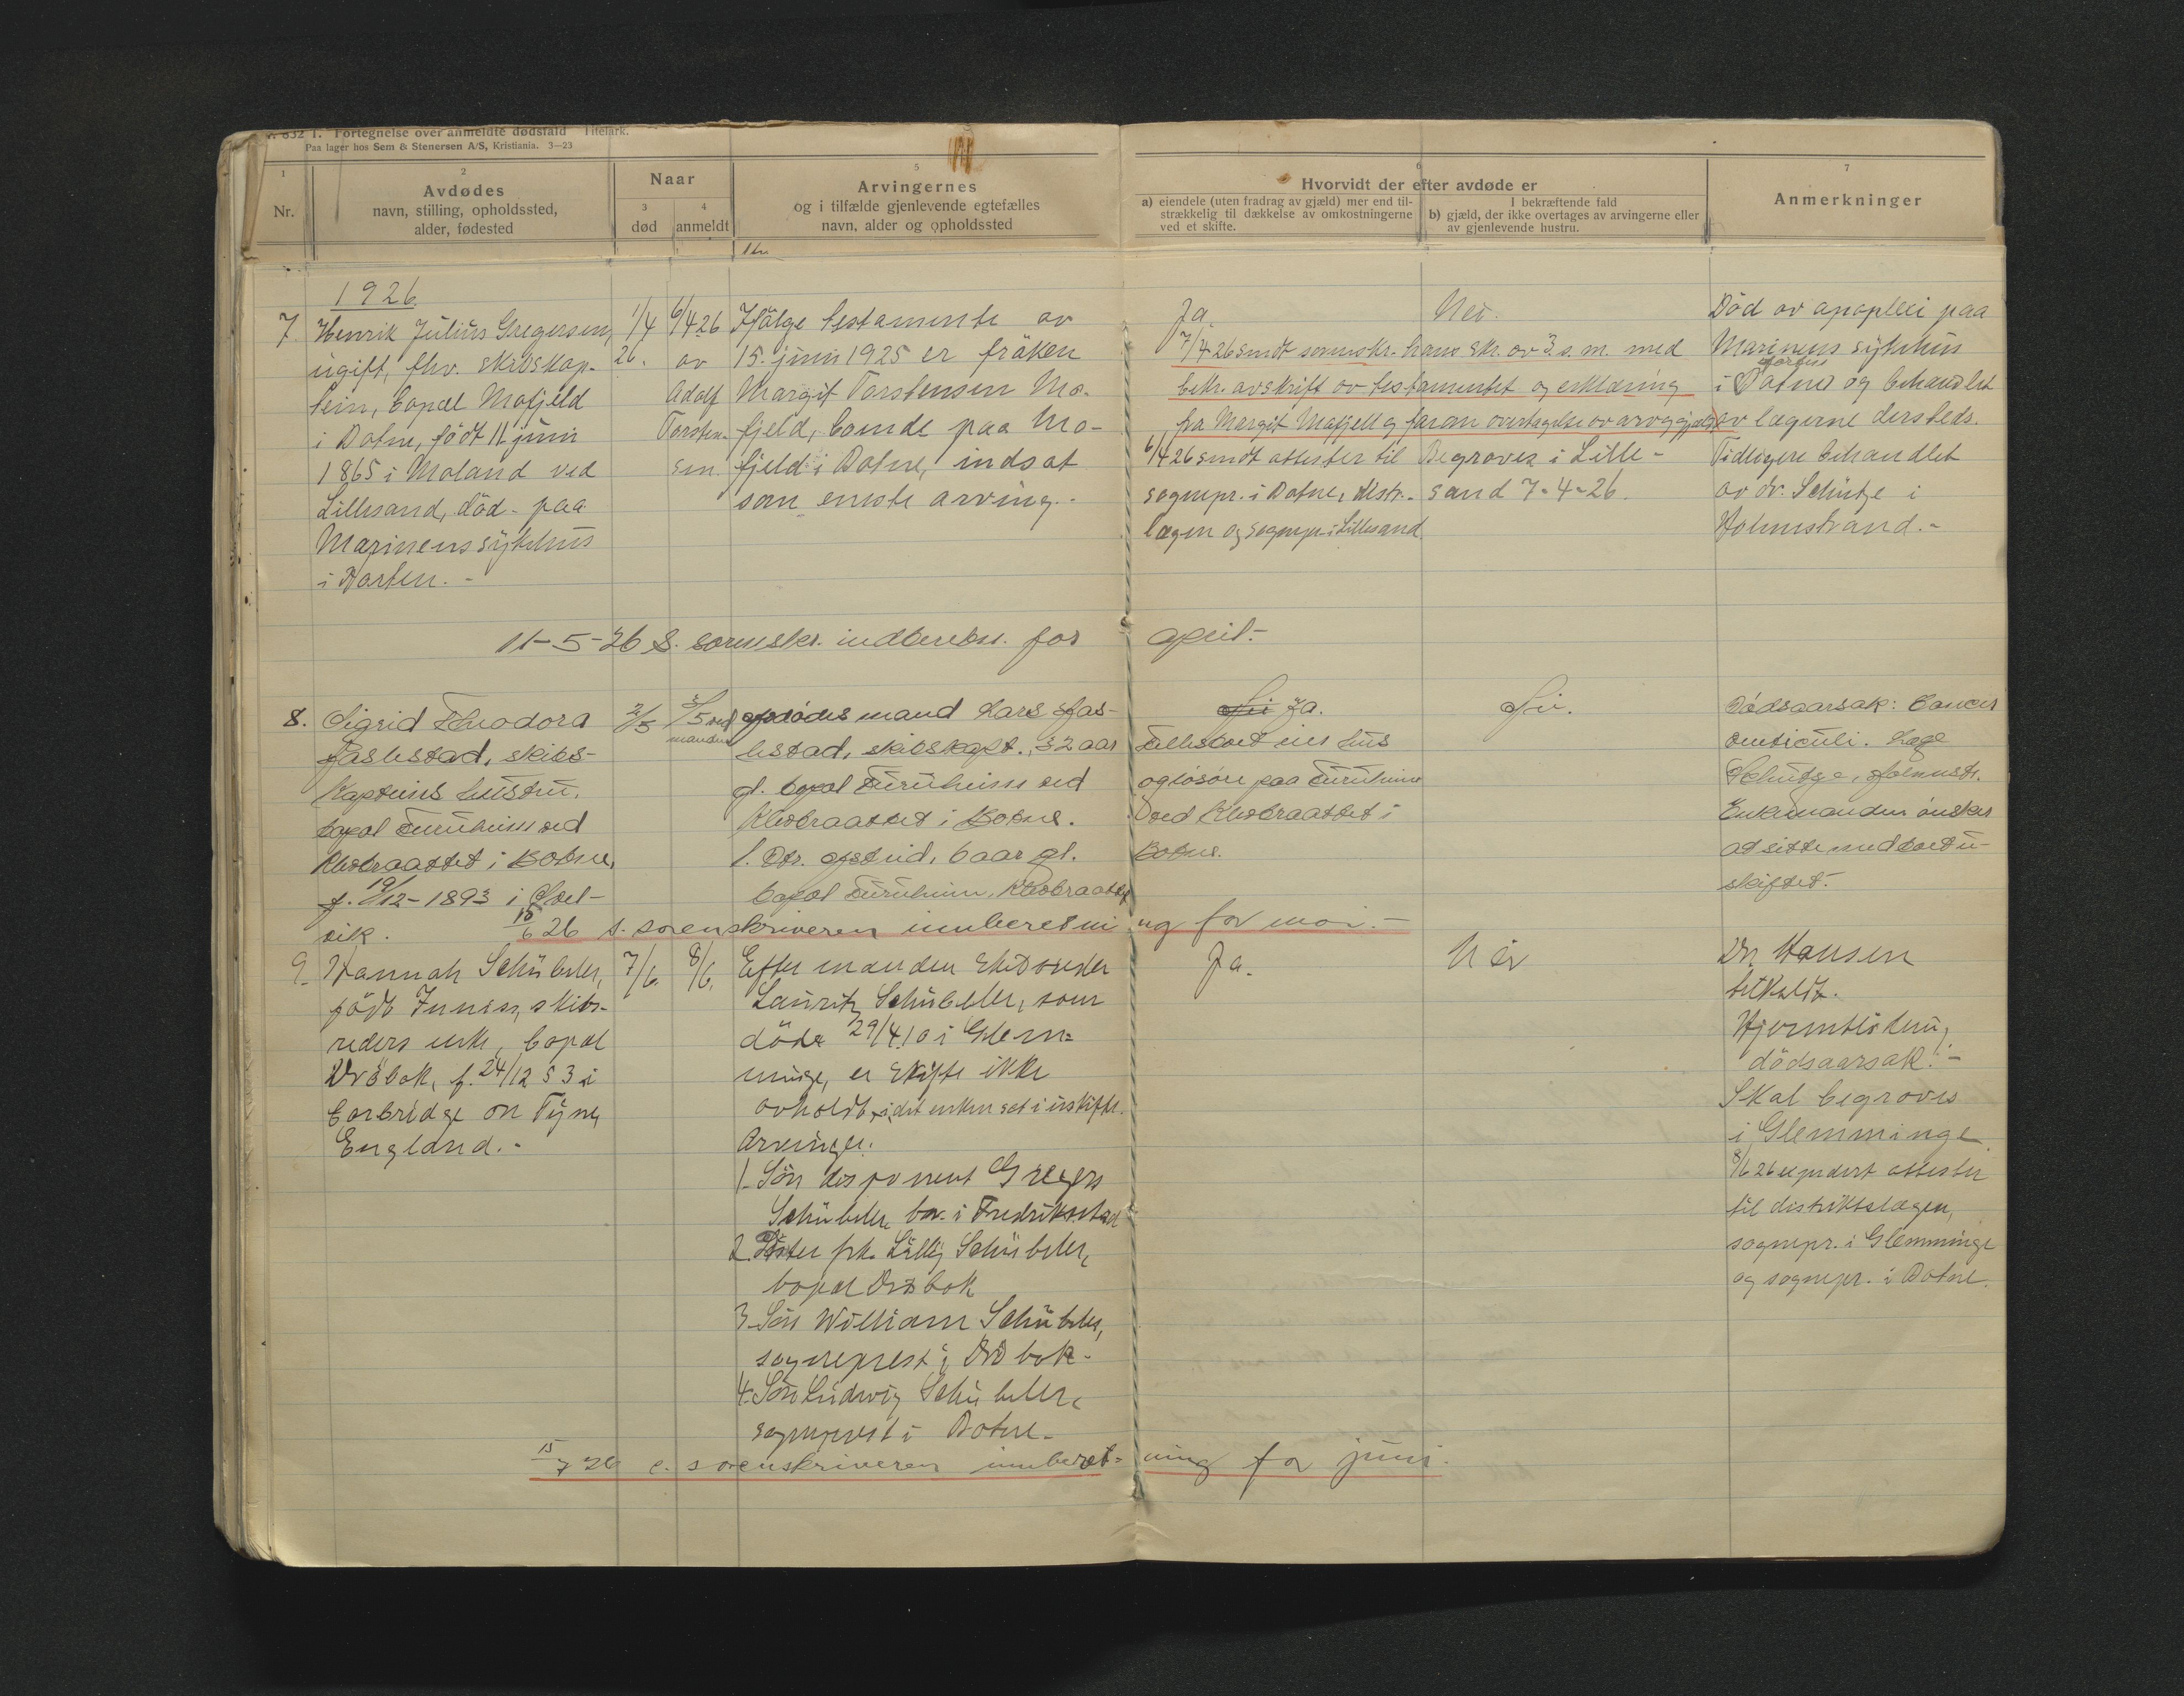 632 1. Fortegnelse over anmeldte dødsfald Titelark.
Paa lager hos Sem & Stenersen A/S, Kristiania. 3—23
1
Nr.
2
Avdødes
navn, stilling, opholdssted,
alder, fødested
Naar
3
død
4
anmeldt
5
Arvingernes
og i tilfælde gjenlevende egtefælles
navn, alder og opholdssted
6
Hvorvidt der efter avdøde er
a) eiendele (uten fradrag av gjæld) mer end til-
strækkelig til dækkelse av omkostningerne
ved et skifte.
I bekræftende fald
b) gjæld, der ikke overtages av arvingerne eller
av gjenlevende hustru.
7
Anmerkninger
1926.
7. Henrik Julius Gregersen,
ugift, fhv. skibskap-
tein, bopæl Mofjeld
i Botne, født 11 juni
1865 i Moland ved
Lillesand, død paa
Marinens sykehus
i Horten. -
1/4
26.
6/4 26
av
Adolf
Torsten-
sen.
Ifølge testamente av
15. juni 1925 er frøken
Margit Torstensen Mo-
fjeld, boende paa Mo-
fjeld i Botne, indsat
som eneste arving. -
Ja
7/4 26 sendt sorenskr. hans skr. av 3. s. m. med
bekr. avskrift av testamentet og erklæring
fra Margit Mofjell og faren om overtagelse av arv og gjæld
6/4 26 sendt attester til
sognepr. i Botne, distr.-
lægen og sognepr. i Lillesand
Nei.
Begraves i Lille-
sand 7-4-26.
Død av apoplexi paa
Marinens sykehus
i Horten og behandlet
av lægerne dersteds.
Tidligere behandlet
av dr. Schütze i
Holmestrand. -
11-5-26 s. sorenskr. indberetn. for april. -
8. Sigrid Theodora
Jaslestad, skibs-
kapteins hustru,
bopæl Furuheim ved
Klevbraattet i Botne,
f. 19/12-1893 i Svel-
vik.
2/5
3/5 ved
manden
Avdødes mand Lars Jas-
lestad, skibskapt., 32 aar
gl. bopæl Furuheim ved
Klevbraattet i Botne.
1. Dtr. Astrid, 6 aar gl.
bopæl Furuheim, Klevbraattet
Nei Ja.
Fællesboet eier hus
og løsøre paa Furuheim
ved Klevbraattet i
Botne.
Nei.
Dødsaarsak: Cancer
ventriculi. Læge
Schütze, Holmestr.
Enkemanden ønsker
at sitte med boet u-
skiftet. -
15/6 26 s. sorenskriveren innberetning for mai. -
9. Hannah Schübeler,
født Jensen, skibs-
reders enke, bopæl
Drøbak, f. 24/12 53 i
Corbridge on Tyne,
England. -
7/6.
8/6.
Efter manden skibsreder
Lauritz Schübeler, som
døde 29/4 10 i Glem-
minge, er skifte ikke
avholdt, idet enken sat i uskifte.
Arvinger:
1. Søn disponent Gregers
Schübeler, bor i Fredrikstad
2. Datter frk. Lilly Schübeler,
bopæl Drøbak
3. Søn William Schübeler,
sogneprest i Drøbak -
4. Søn Ludvig Schübeler,
sogneprest i Botne -
Ja.
Nei
Dr. Hansen
tilkaldt.
Hjernebl​ødning
dødsaarsak. -
Skal begraves
i Glemminge
8/6 26 expedert attester
til distriktslægen,
sognepr. i Glemminge
og sognepr. i Botne.
15/7 26 s. sorenskriveren innberetning for juni.